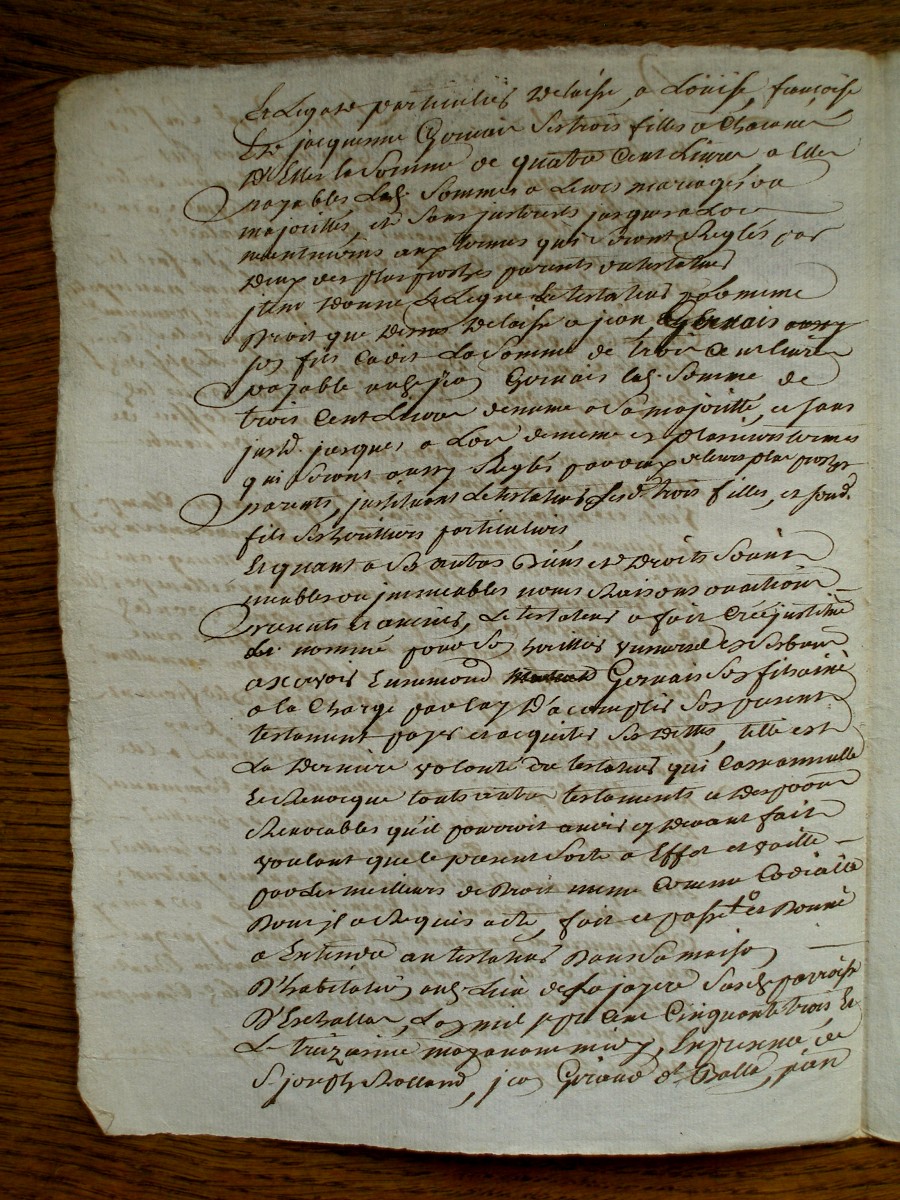 Et Legate particuliers Delaisse, a Loüise, françoise
Et jacquemine Gervais ses trois filles a Chacune
D'Elles la Somme de quatre Cent Livres a Elles
payables Lesd. Sommes a Leurs mariages ou
majorittés, et sans justerests jusques a Lors
neantmoins aux termes qui seront Reglés par
Deux des plus proches parents du testateur
jtem Donne et Legue Le testateur par meme
Droit que Dessus Delaisse a jean Gervais aussy
son fils Cadit La Somme de trois Cent livres
payable aud. jean Gervais lad. Somme de
trois Cent Livres de meme a Sa majoritté, et sans
justt. jusques a Lors de meme et plusieurs termes
qui seront aussy Reglés par deux de leurs plus proches
parents, justituant Le testateur Lesd. trois filles, et sond.
fils Ses heritiers particuliers
Et quant a Ses autres Biens et Droits Soient
meubles ou jmmeubles noms Raisons ou actions
presents et avenir, Le testateur a fait Créé justitué
Et nommé pour Son heritier universel et
a scavoir Ennemond Gervais Son fils ainé
a la Charge par luy D'acomplir Son present
testament payer et acquiter Ses Dettes, telle est
La Derniere volonté du testateur qui Cassannulle
Et Revocque touts autres testaments et Disp
Revocables qu'il pourroit avoir cy Devant fait
voulant que le present Sorte a Effet et vaille
par Les meilleurs de Droit meme Comme Codicille
Dont jl a Requis acte, fait et passé Et Donné
a Entendre au testateur Dans Sa maison
D'habitation aud. Lieu de fajayere Susd. parroisse
D'Eschallas, L'an mil sept Cent Cinquante trois Et
Le treizieme may avant midy, En presence de
Sr. joseph Rolland, jean Giraud Sr. Dalla, jean